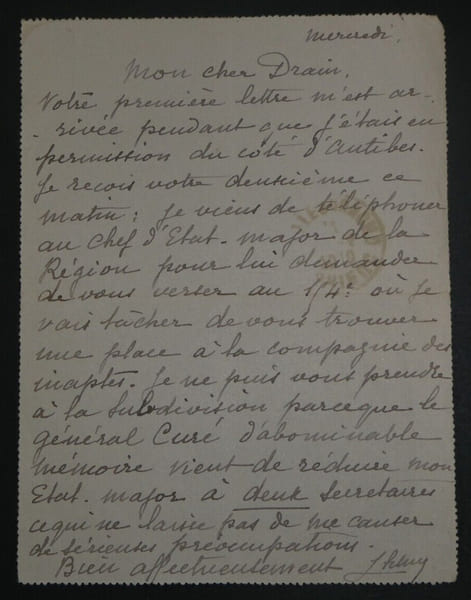 Mercredi.
Mon cher Drain,
Votre première lettre m'est ar-
-rivée pendant que j'étais en
permission du côté d'Antibes.
Je reçois votre deuxième ce
matin; je viens de téléphoner
au chef d'Etat-major de la
Région pour lui demander
de vous verser au 1/4: où je
vais tâcher de vous trouver
une place à la compagnie des
inaptes. Je ne puis vous prendre
à la Subdivision parceque le
général Curé d'abominable
mémoire vient de réduire mon
Etat-major à deux secrétaires
ce qui ne laisse pas de me causer
de sérieuses préocupations.
Bien affectueusement